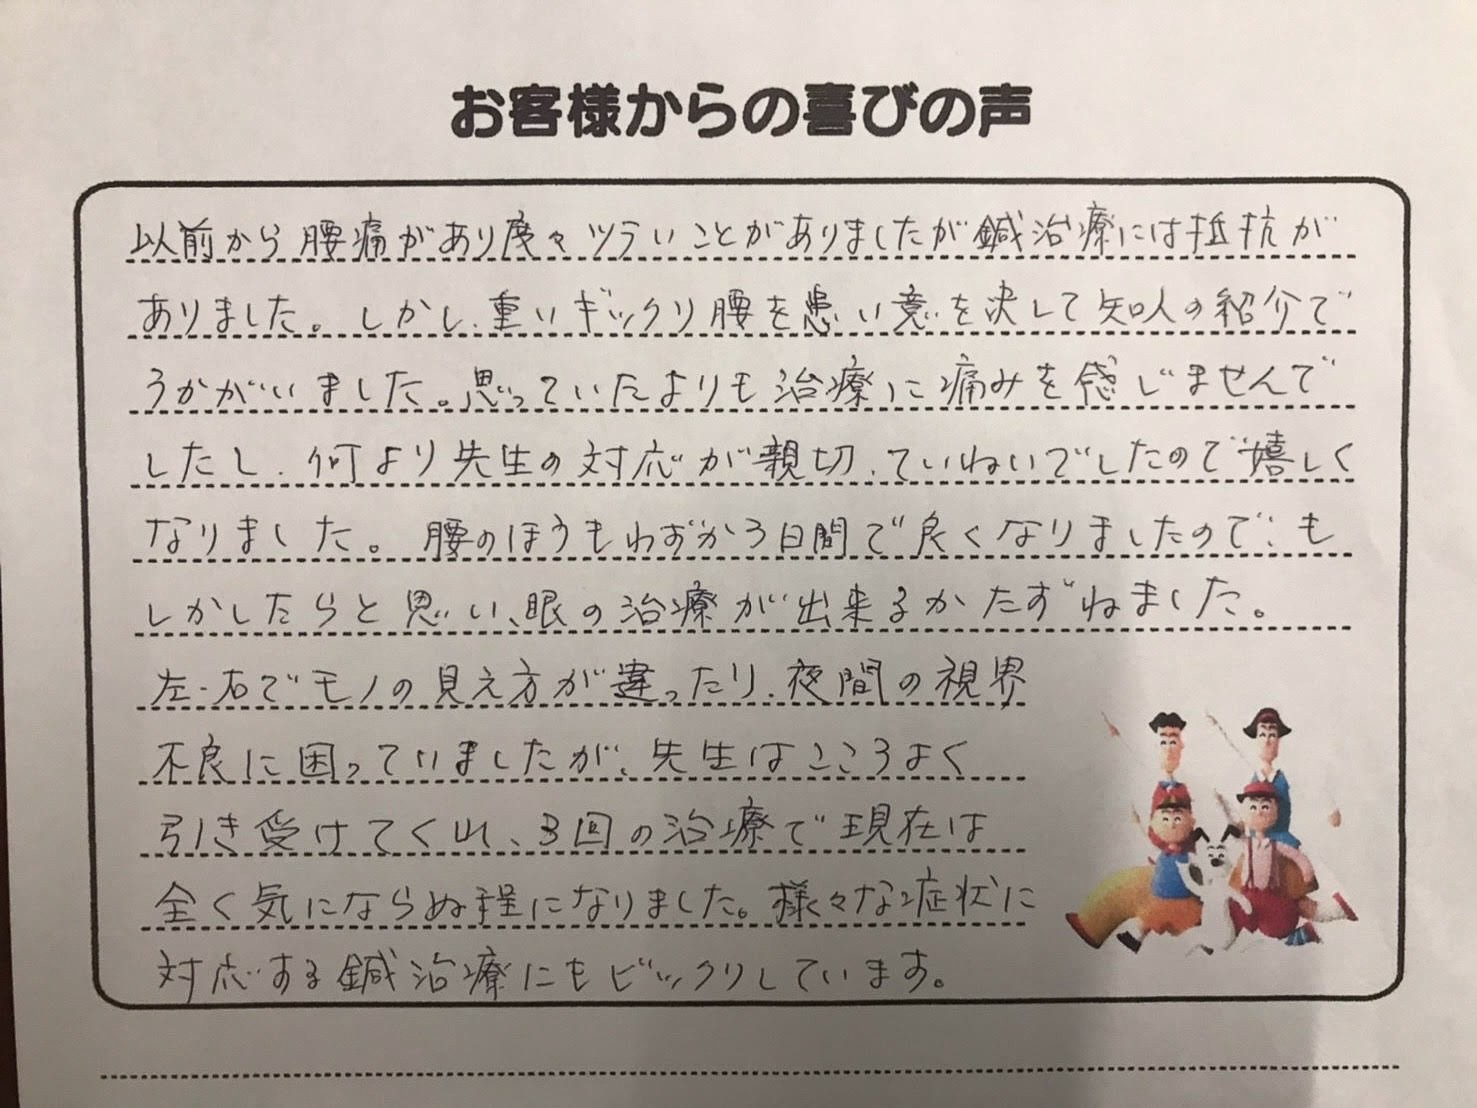 お客様からの喜びの声
以前から腰痛があり度々ツラいことがありましたが鍼治療には抵抗が
ありました。しかし、重いギックリ腰を患い意を決して知人の紹介で
うかがいました。思っていたよりも治療に痛みを感じませんで
したし、何より先生の対応が親切、ていねいでしたので嬉しく
なりました。腰のほうもわずか3日間で良くなりましたので、も
しかしたらと思い、眼の治療が出来るかたずねました。
左・右でモノの見え方が違ったり、夜間の視界
不良に困っていましたが、先生はこころよく
引き受けてくれ、3回の治療で現在は
全く気にならぬ程になりました。様々な症状に
対応する鍼治療にもビックリしています。